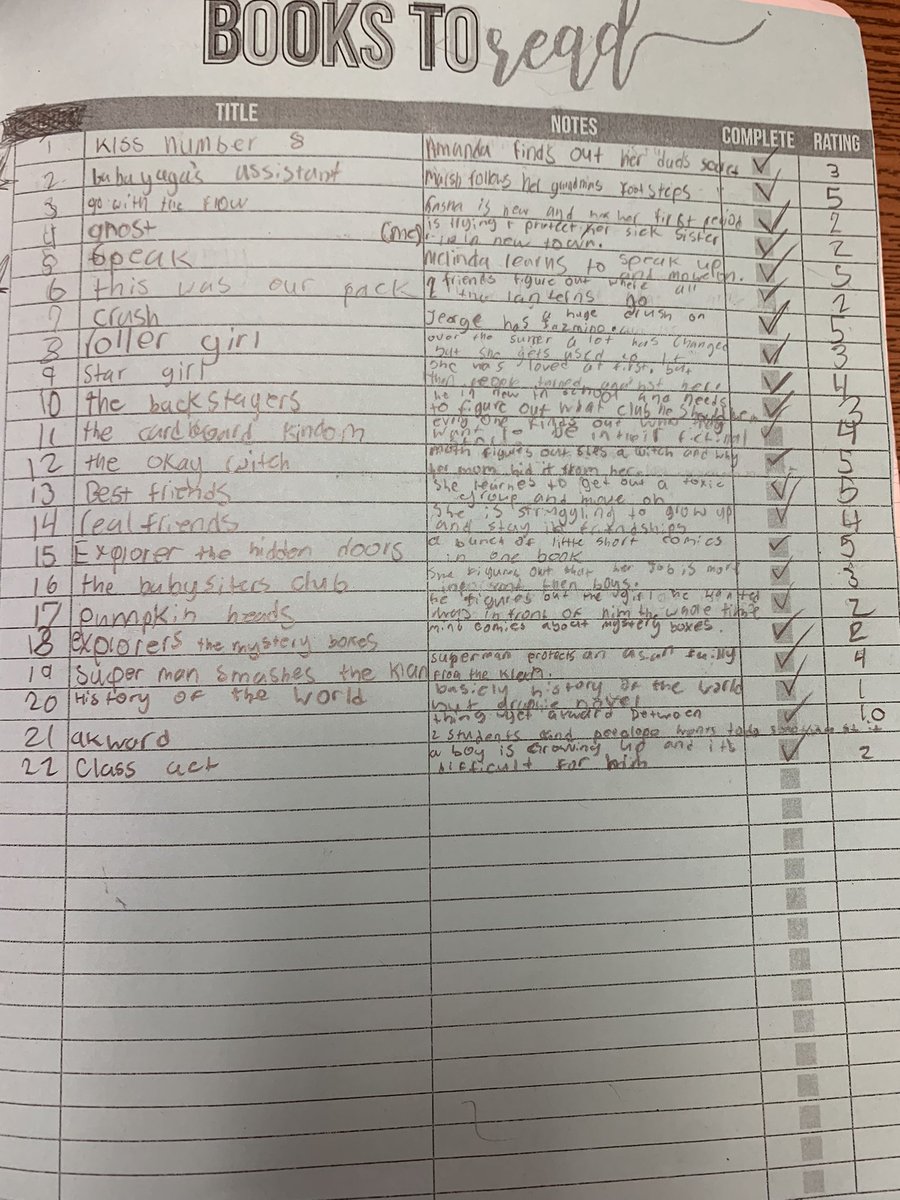 BOOKS TO read
TITLE NOTES COMPLETE RATING
1 Kiss number 8 Amanda finds out her dads secret 3
2 babayaga's assistant Marsh follows her grandmas footsteps 5
3 go with the flow Sasha is new and has her first period 2
4 ghost is trying t protect her sick sister
in a new town. 2
5 Speak Melinda learns to speak up 5
6 this was our pack 2 friends figure out where all
the lanterns go 2
7 Crush Jeorge has a huge crush on
Jazmine 5
8 roller girl over the summer a lot has changed
but she gets used to it 3
9 Star girl She was loved at first, but
then people turned against her. 4
10 the backstagers he in new in school and needs
to figure out what club he 3
11 the cardboard kindom every one 4
12 the okay witch moth figures out shes a witch and why
her mom hid it from her 5
13 Best friends She learnes to get out a toxic
group and move on 5
14 real friends She is struggling to grow up
and stay in friendships 4
15 Explorer the hidden doors a bunch of little short comics
in one book 5
16 the babysiters club She figures out that her job is more
then boys. 3
17 pumpkin heads he figures out the girl he wanted
was in front of him the whole time 2
18 explorers the mystery boxes mini comics about mystery boxes. 2
19 Super man smashes the klan superman protects an asan family
from the klan. 4
20 History of the world basicly history of the world
but graphic novel 1
21 akword thing get award between
2 students and penelope wants to do something abt it 10
22 Class act a boy is growing up and its
difficult for him 2